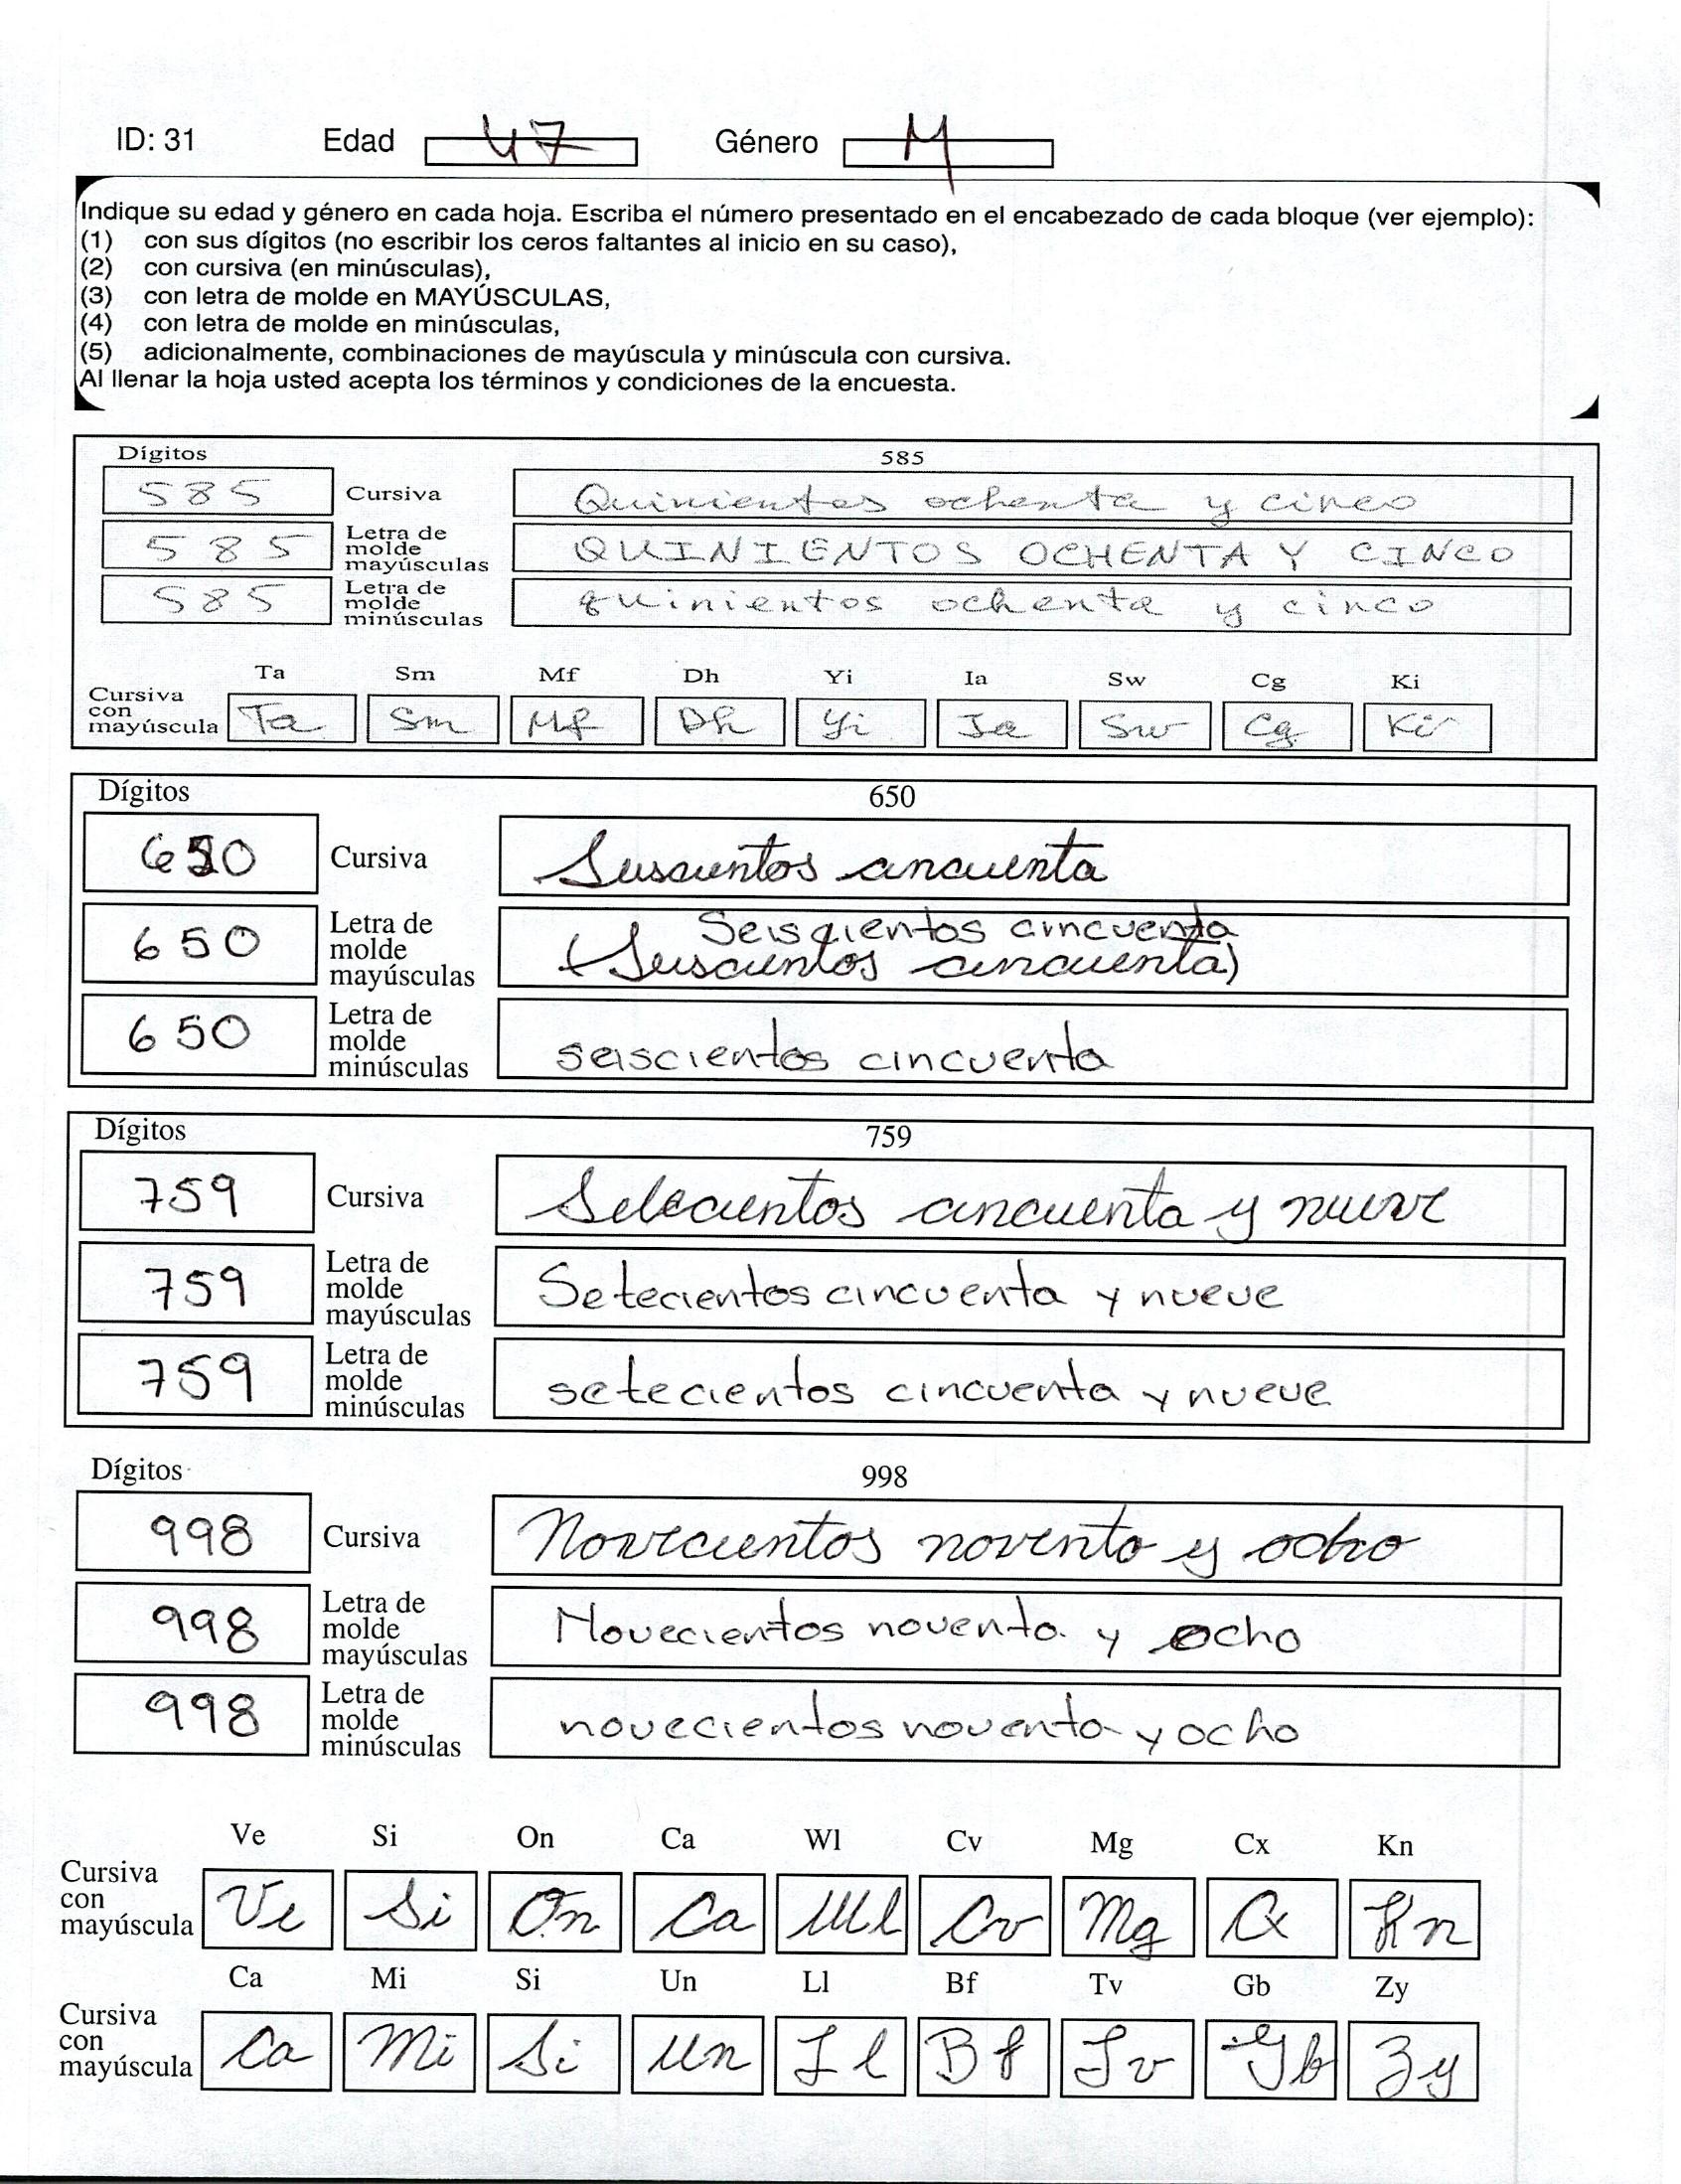 ID: 31 Edad 47 Género M
Indique su edad y género en cada hoja. Escriba el número presentado en el encabezado de cada bloque (ver ejemplo):
(1) con sus dígitos (no escribir los ceros faltantes al inicio en su caso),
(2) con cursiva (en minúsculas),
(3) con letra de molde en MAYÚSCULAS,
(4) con letra de molde en minúsculas,
(5) adicionalmente, combinaciones de mayúscula y minúscula con cursiva.
Al llenar la hoja usted acepta los términos y condiciones de la encuesta.
Dígitos 585
585 Cursiva Quinientos ochenta y cinco
585 Letra de molde mayúsculas QUINIENTOS OCHENTA Y CINCO
585 Letra de molde minúsculas quinientos ochenta y cinco
Ta Sm Mf Dh Yi Ia Sw Cg Ki
Cursiva con mayúscula Ta Sm Mf Dh Yi Ia Sw Cg Ki
Dígitos 650
650 Cursiva Seiscientos cincuenta
650 Letra de molde mayúsculas Seiscientos cincuenta
(Seiscientos cincuenta)
650 Letra de molde minúsculas seiscientos cincuenta
Dígitos 759
759 Cursiva Setecientos cincuenta y nueve
759 Letra de molde mayúsculas Setecientos cincuenta y nueve
759 Letra de molde minúsculas setecientos cincuenta y nueve
Dígitos 998
998 Cursiva Novecientos noventa y ocho
998 Letra de molde mayúsculas Novecientos noventa y ocho
998 Letra de molde minúsculas novecientos noventa y ocho
Ve Si On Ca Wl Cv Mg Cx Kn
Cursiva con mayúscula Ve Si On Ca Wl Cv Mg Cx Kn
Ca Mi Si Un Ll Bf Tv Gb Zy
Cursiva con mayúscula Ca Mi Si Un Ll Bf Tv Gb Zy